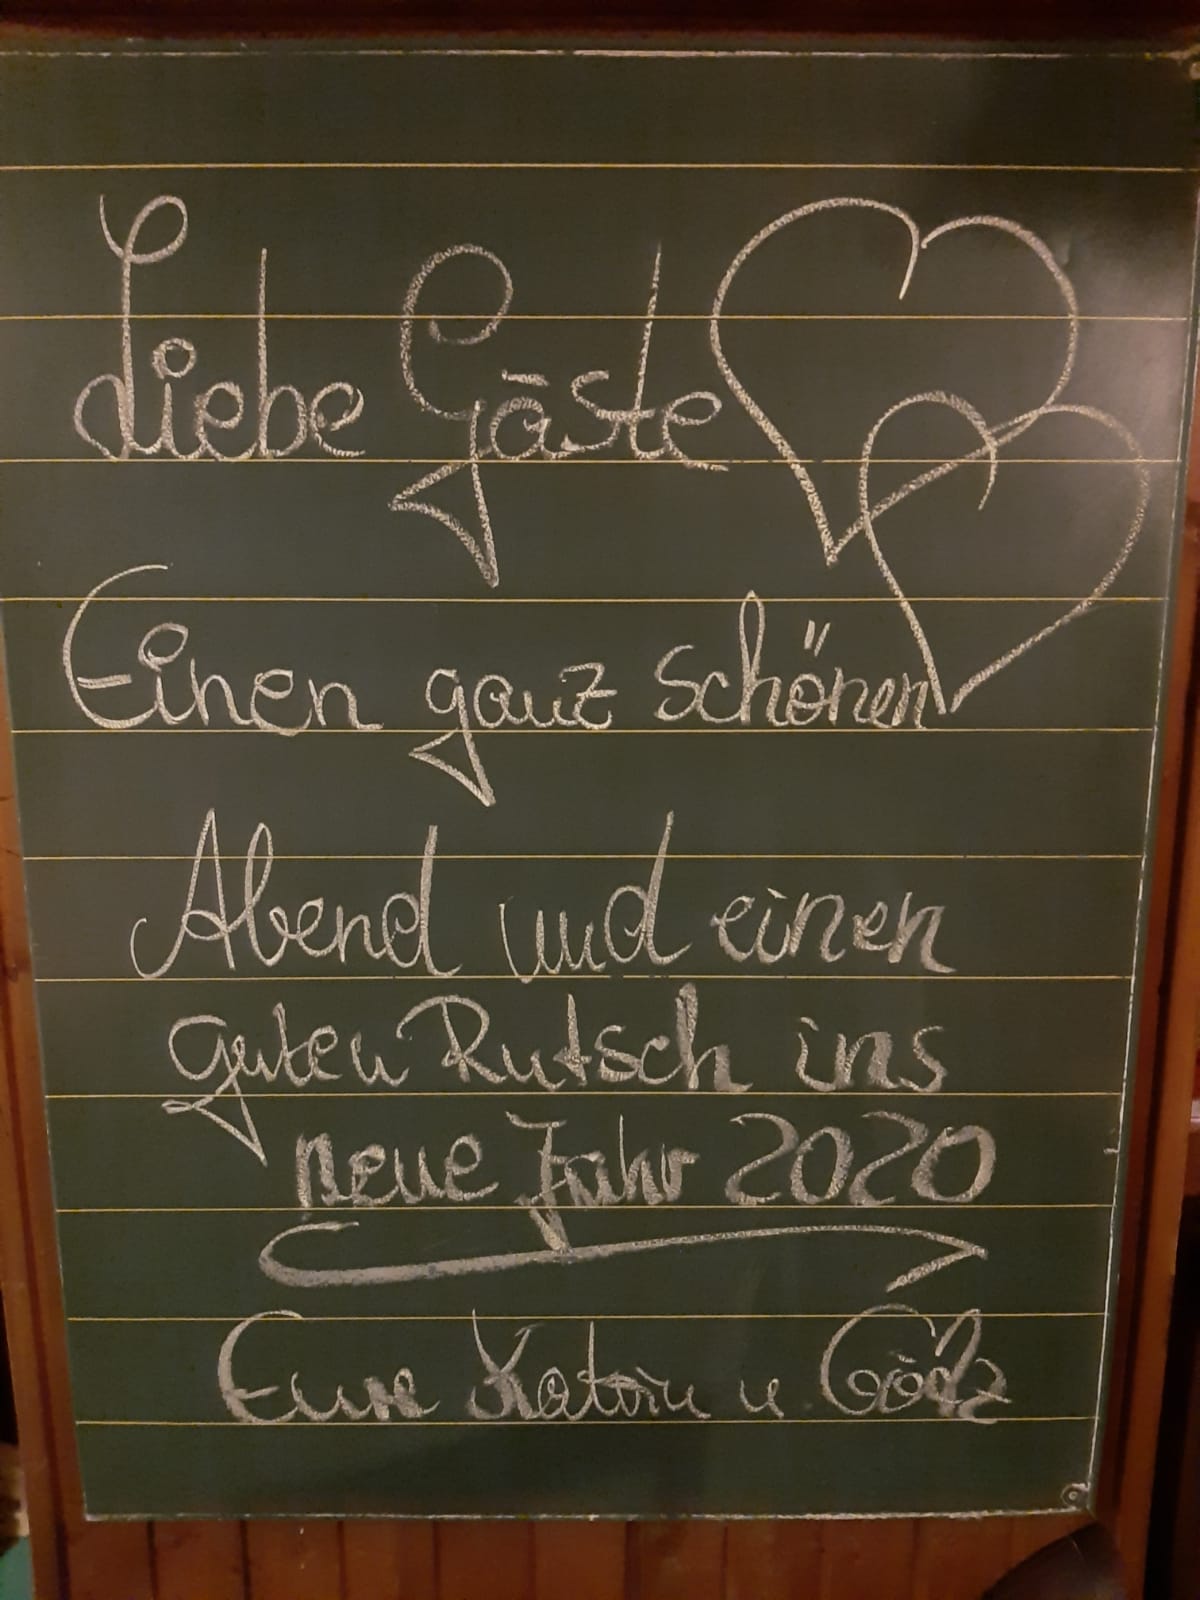 Liebe Gäste
Einen ganz schönen
Abend und einen
guten Rutsch ins
neue Jahr 2020
Eure Katrin u Götz